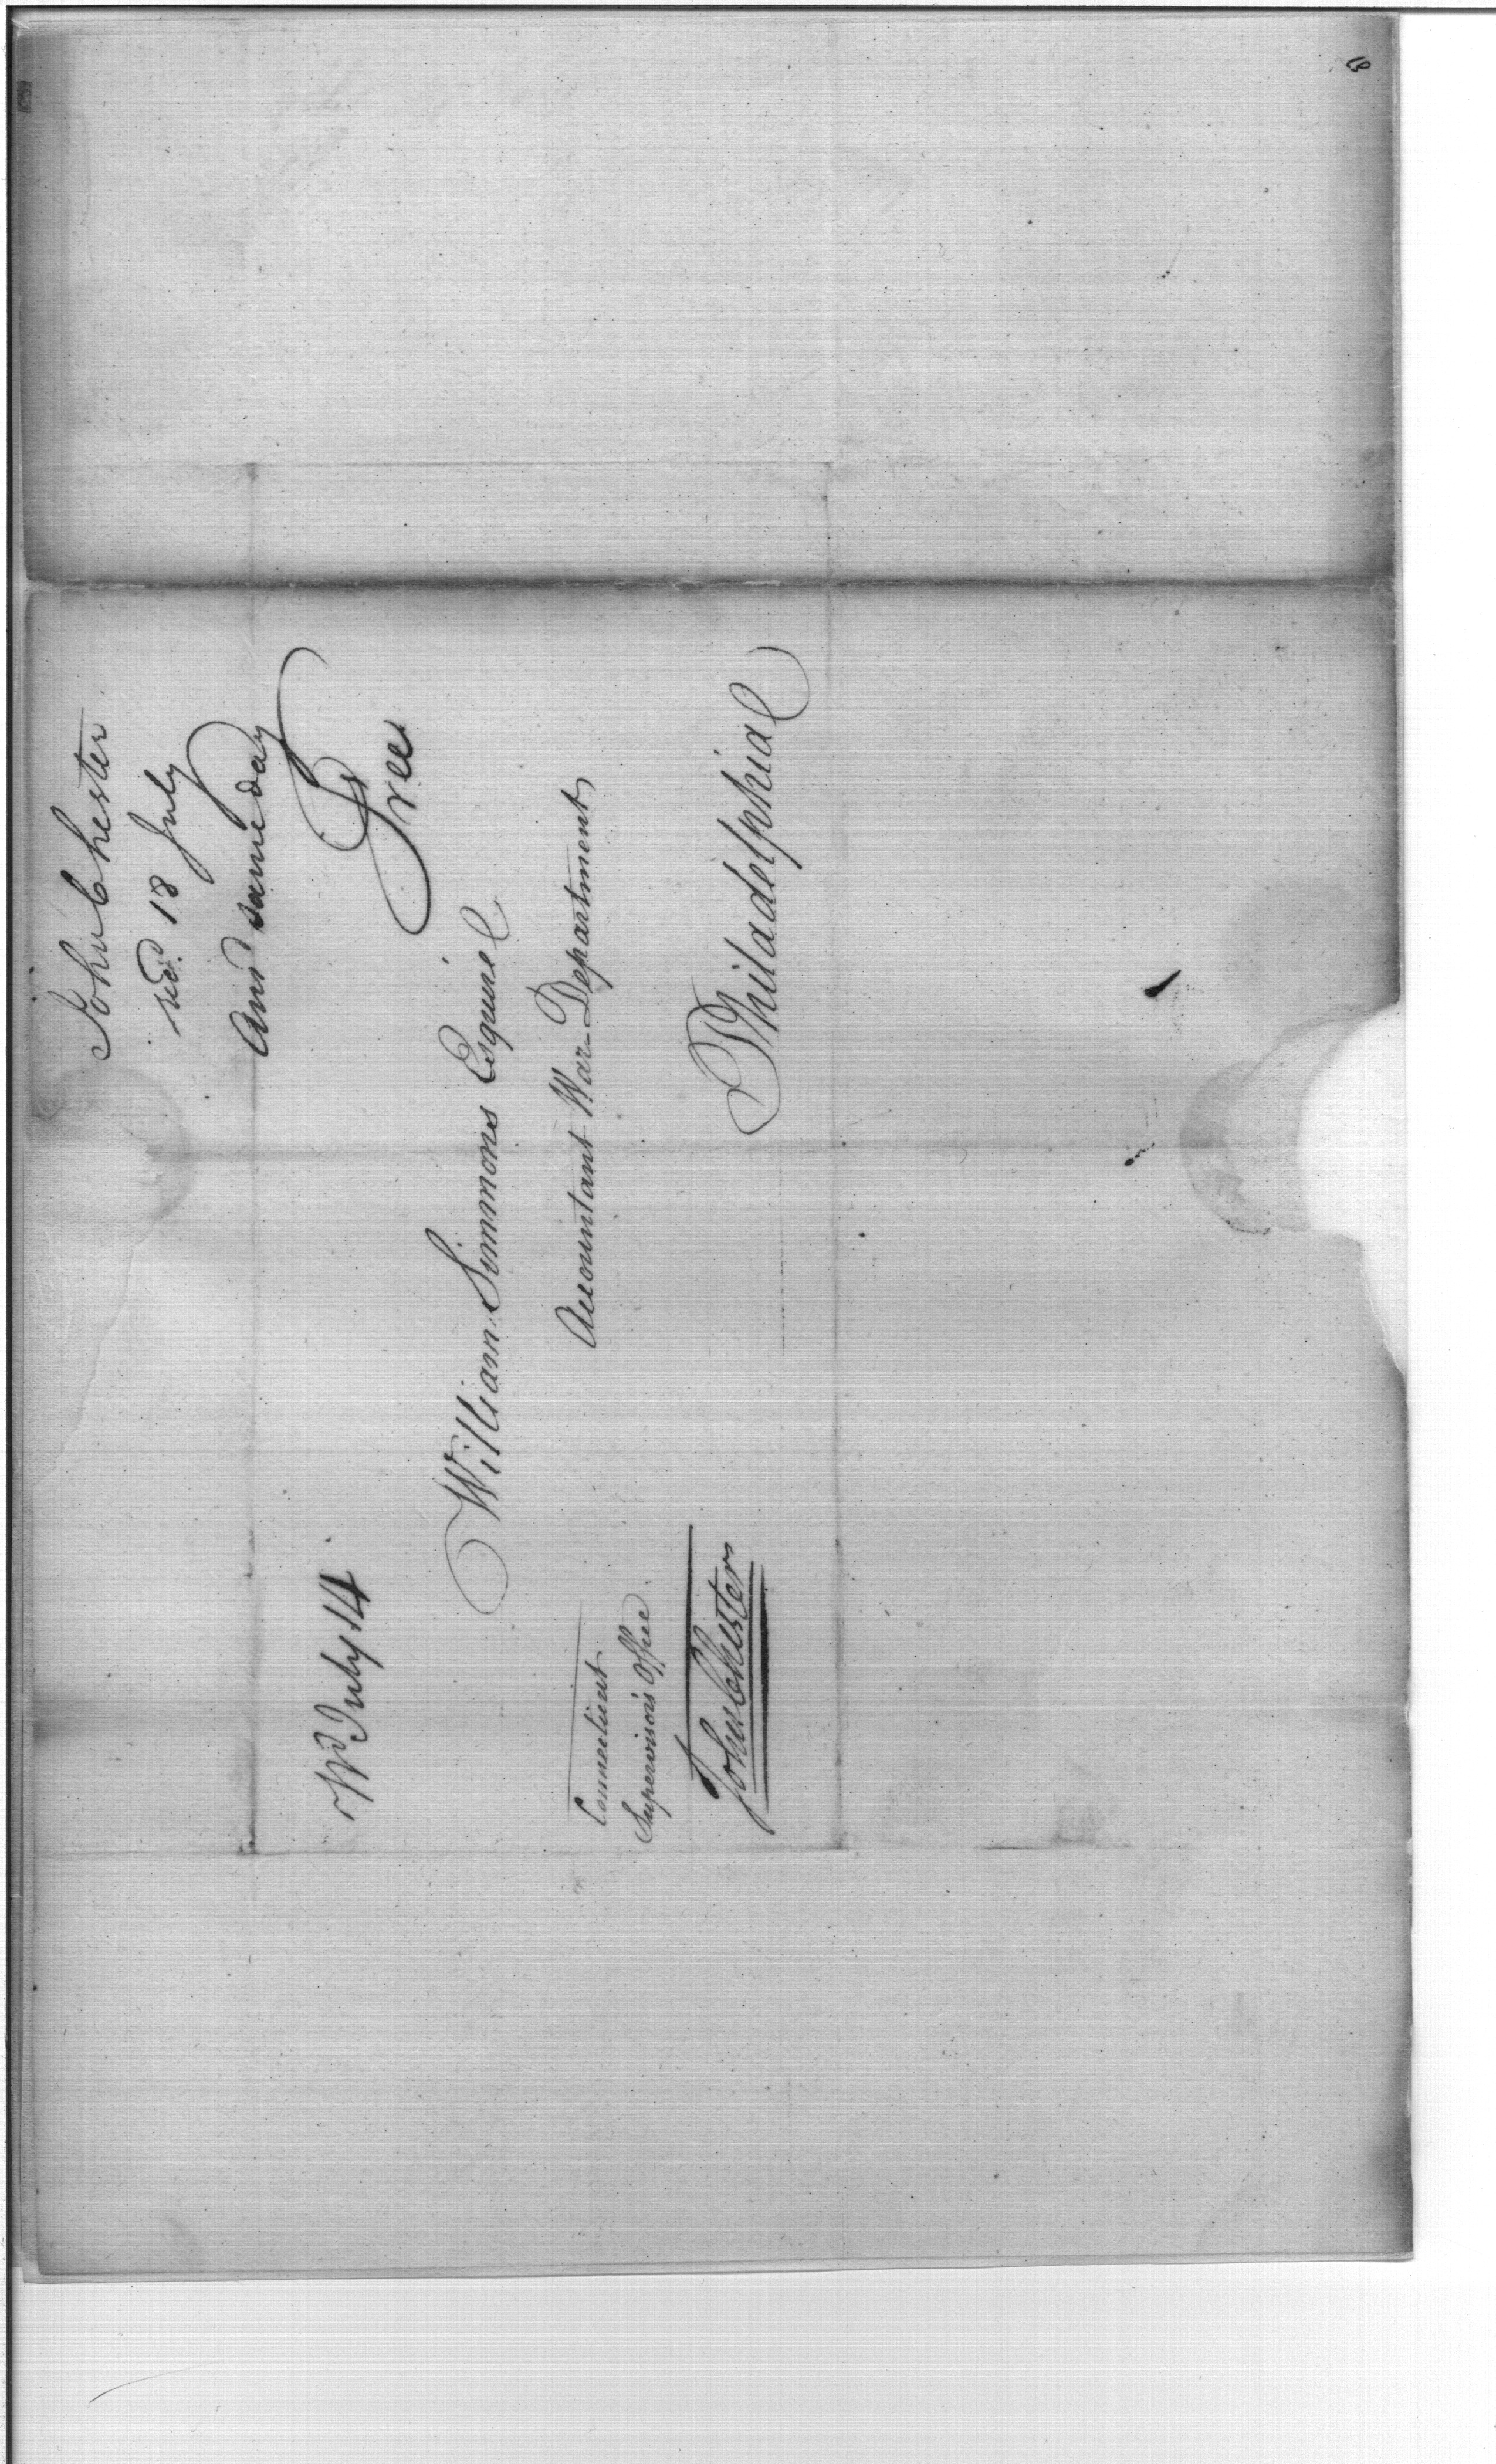 John Chester
recd. 18 July
Ansd same day
Free
Wd July 14
William Simmons Esquire
Accountant War-Department
Philadelphia
Connecticut
Supervisor's Office
John Chester